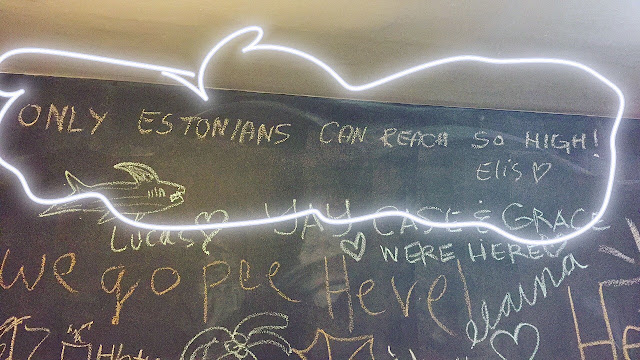 ONLY ESTONIANS CAN REACH SO HIGH!
Elis
Lucas
YAY CASE & GRACE
WERE HERE
We go pee Here!
elaina